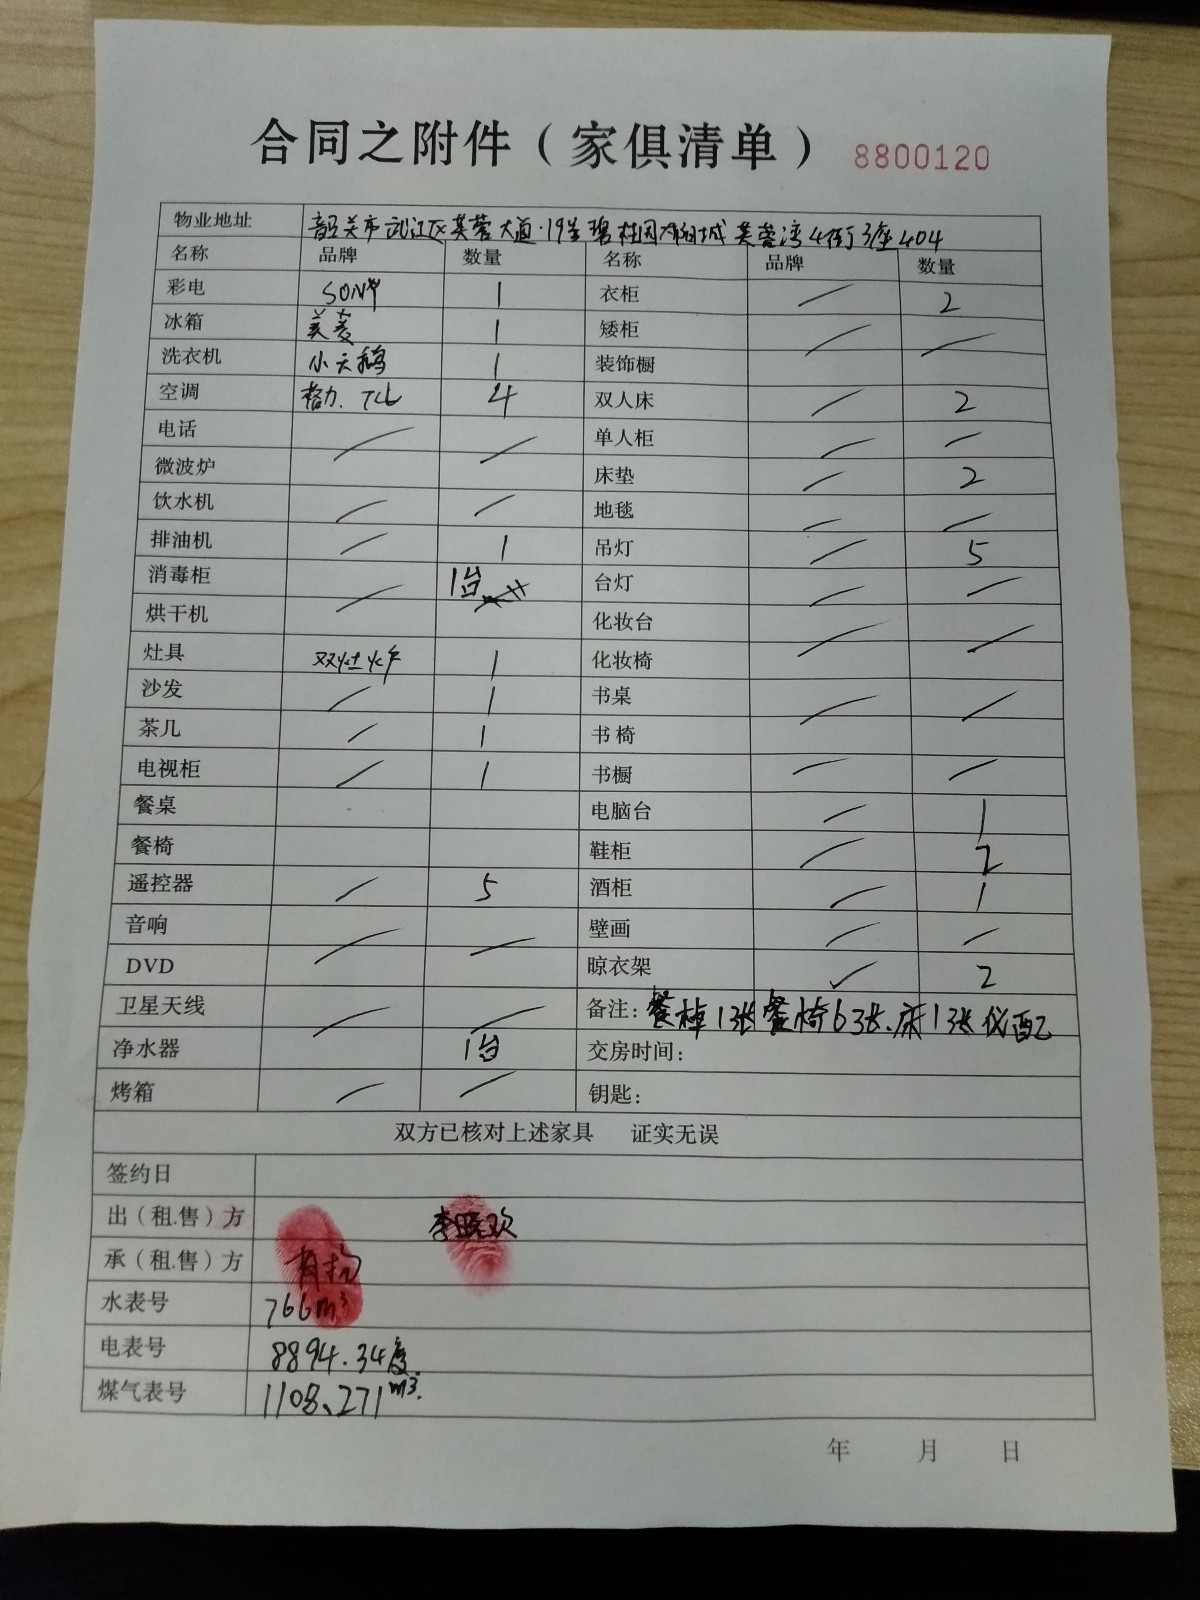 合同之附件（家俱清单） 8800120
物业地址 韶关市武江区芙蓉大道·19号碧桂园太阳城芙蓉湾4街3座404
名称 品牌 数量 名称 品牌 数量
彩电 SONY 1 衣柜 / 2
冰箱 美菱 1 矮柜 / /
洗衣机 小天鹅 1 装饰橱
空调 格力、TCL 4 双人床 / 2
电话 / / 单人柜 / /
微波炉 床垫 / 2
饮水机 / / 地毯 / /
排油机 / 1 吊灯 / 5
消毒柜 / 1台 台灯 / /
烘干机 化妆台 / /
灶具 双灶炉 1 化妆椅
沙发 / 1 书桌 / /
茶几 / 1 书椅
电视柜 / 1 书橱 / /
餐桌 电脑台 / 1
餐椅 鞋柜 / 2
遥控器 / 5 酒柜 / 1
音响 / / 壁画 / /
DVD 晾衣架 ✓ 2
卫星天线 / / 备注：餐椁1张餐椅6张、床1张仪配
净水器 1台 交房时间：
烤箱 / / 钥匙：
双方已核对上述家具 证实无误
签约日
出（租.售）方 李晓欢
承（租.售）方
水表号 766m³
电表号 8894.34度
煤气表号 1108、271m³.
年 月 日